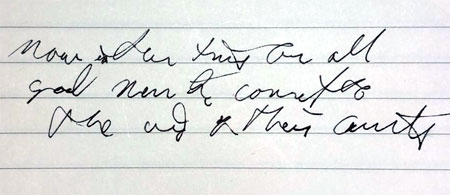 Now is the time for all
good men to come to
the aid of their country